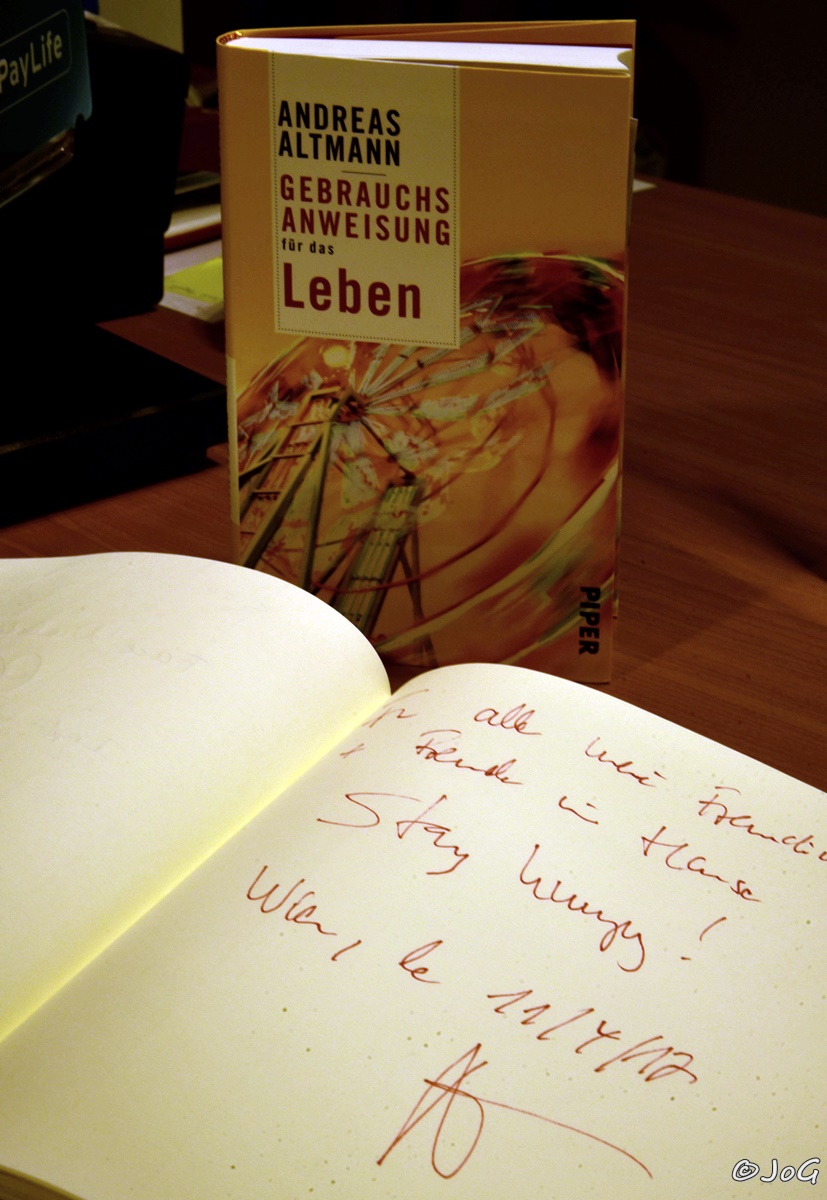 PayLife
ANDREAS
ALTMANN
GEBRAUCHS
ANWEISUNG
für das
Leben
PIPER
alle meine Freundin
+ Freunde im Hause
Stay hungry!
Wien, le 11/4/17
©JoG